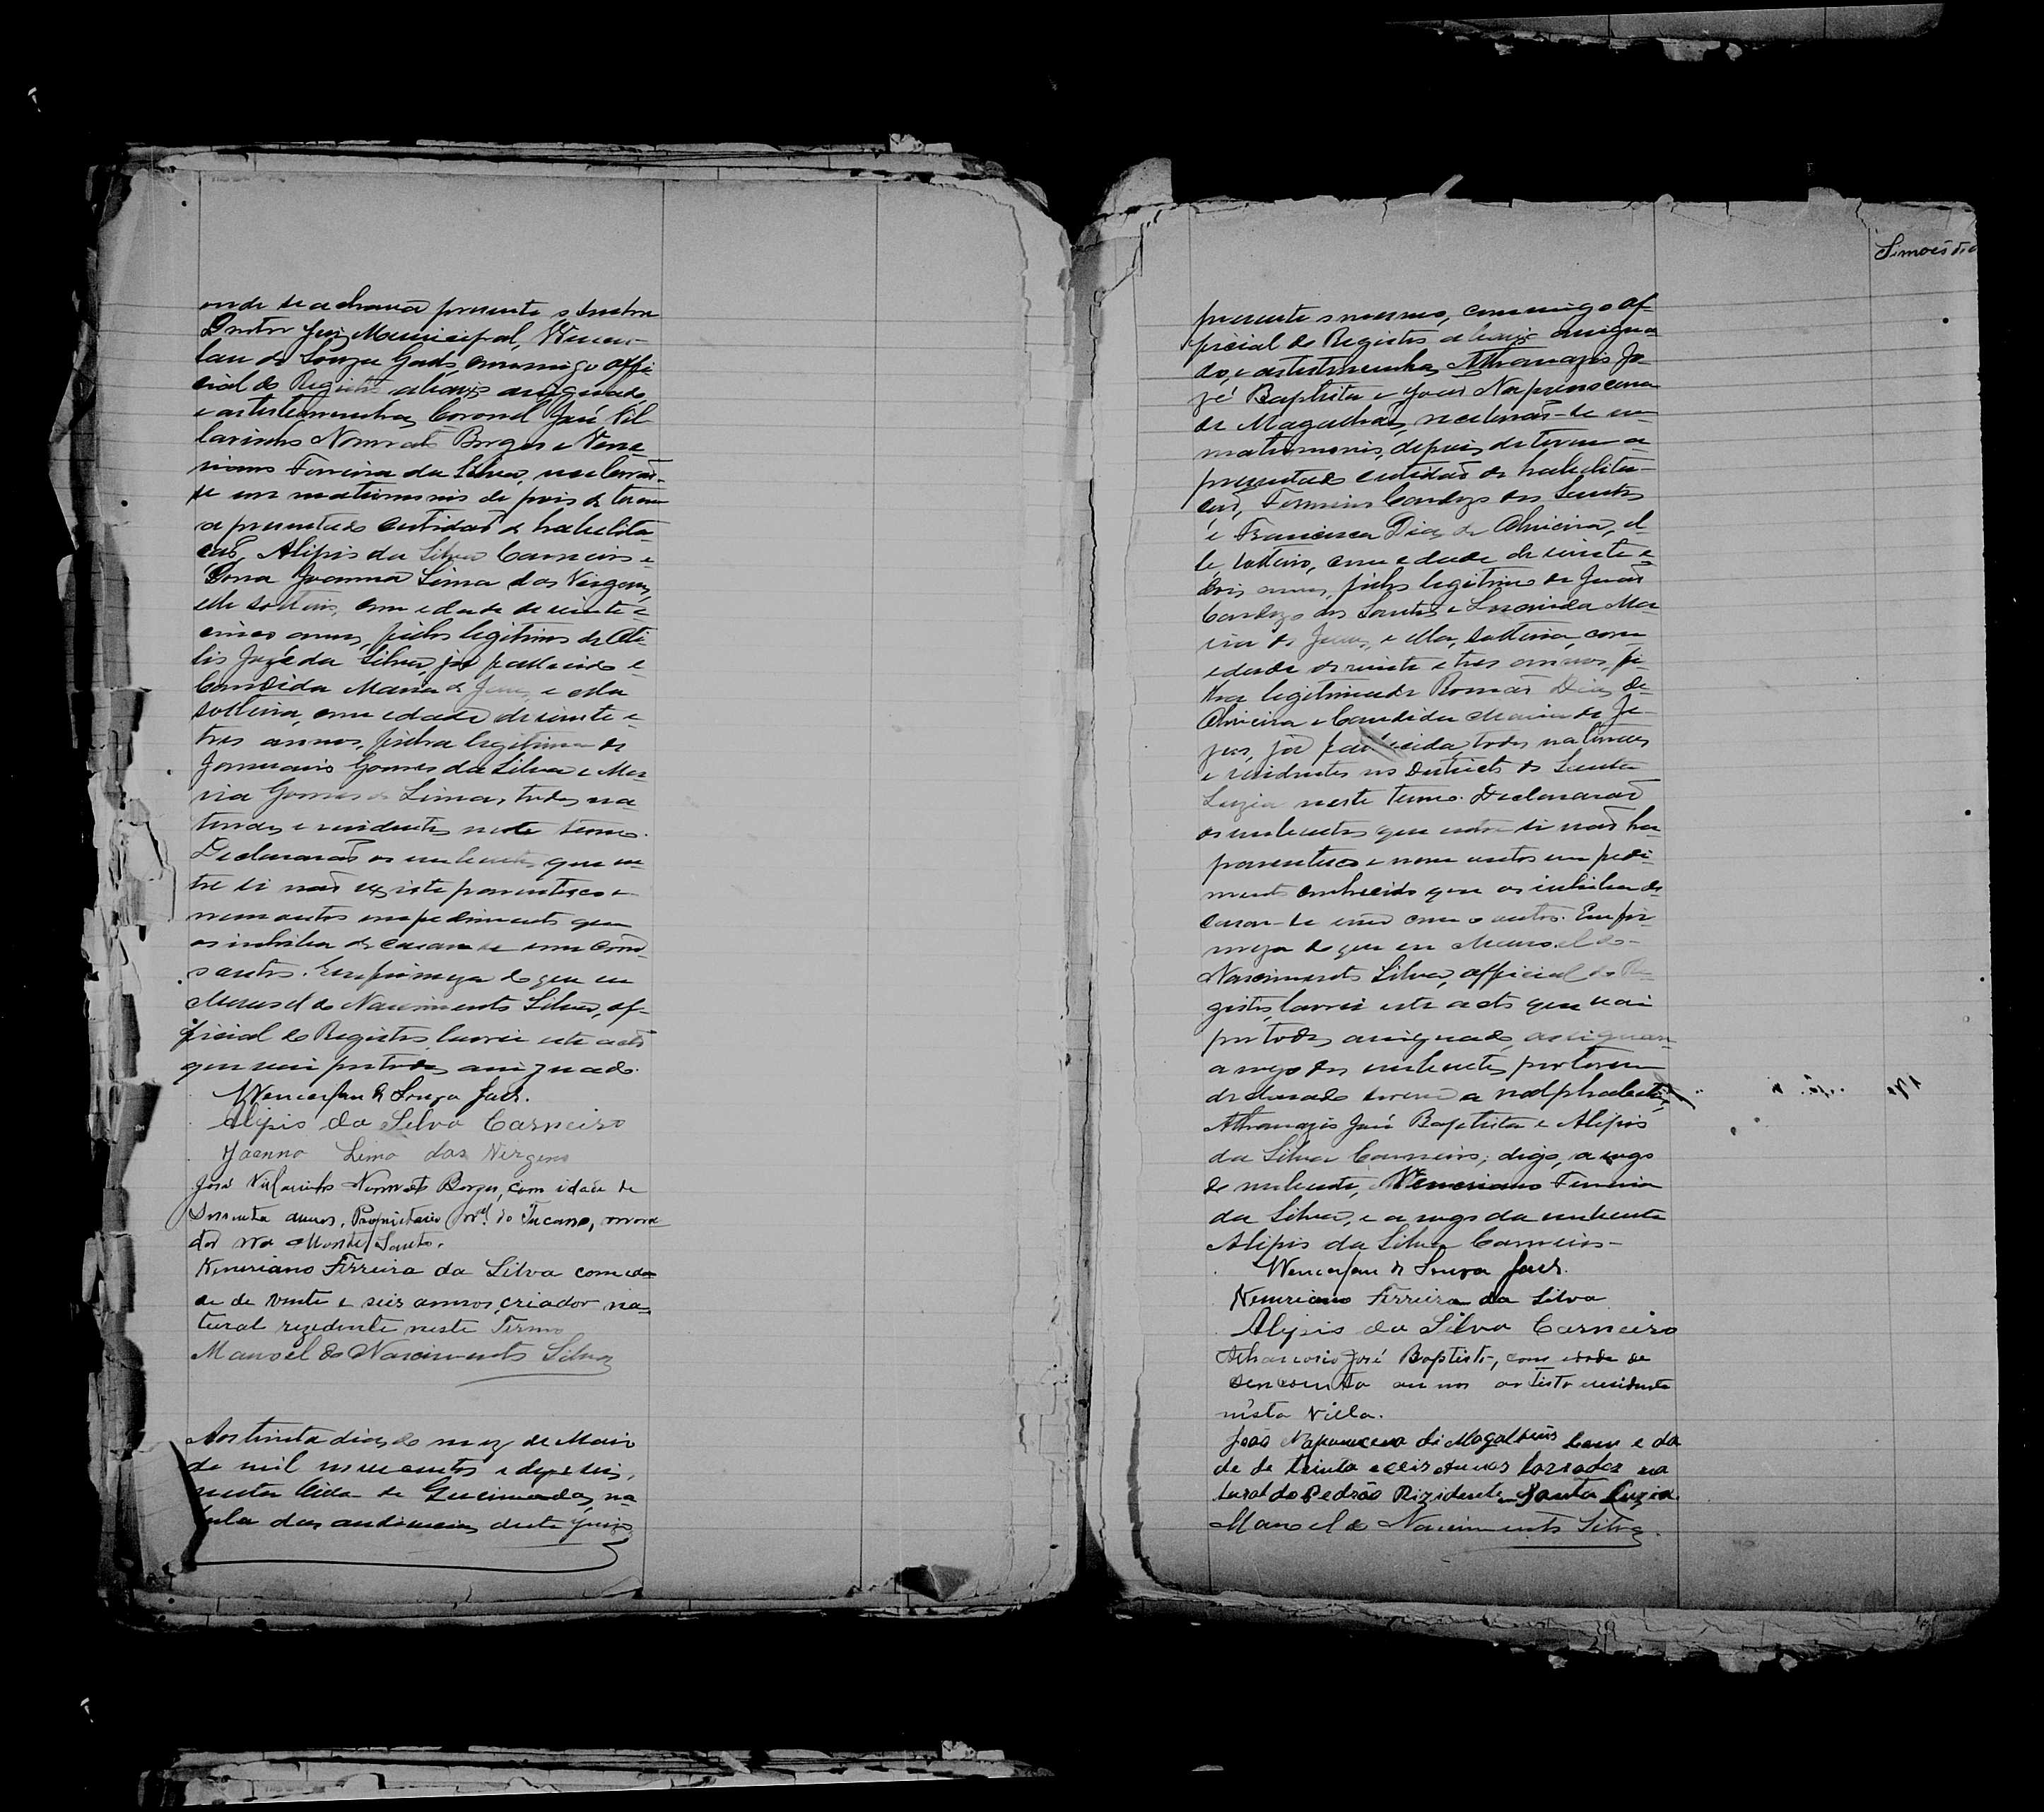 onde se achava presente o Senhor
Doutor Juiz Municipal, Wences-
lau de Souza Gads, commigo offi-
cial do Registro abaixo assignado,
e as testemunhas Coronel José Vil-
larinho Nonnato Borges e Vene-
riano Ferreira da Silva, receberão-
se em matrimonio depois de terem
apresentado certidaõ de habilita-
caõ, Alipio da Silva Carneiro e
Dona Joanna Lima das Virgens,
elle solteiro, com edade de vinte e
cinco annos, filho legitimo de
José da Silva, já fallecido e
Candida Maria de Jesus, e ella
solteira, com edade de vinte e
tres annos, filha legitima de
Januario Gomes da Silva e Ma-
ria Gomes de Lima, todos na-
turaes e residentes neste termo.
Declararaõ os nubentes que en-
tre si naõ existe parentesco e
nem outro impedimento que
os inhiba de casarem-se um com
o outro. Em firmeza do que eu
Manoel do Nascimento Silva, of-
ficial do Registro lavrei este acto
que vai por todos assignado.
Wenceslau de Souza Gads.
Alipio da Silva Carneiro
Joanna Lima das Virgens
José Vilarinho Nonnato Borges, com idade de
annos, Proprietario do Tucano, mora-
dor no Monte Santo.
Veneriano Ferreira da Silva com eda-
de de vinte e seis annos, criador na-
tural rezedente neste Termo
Manoel do Nascimento Silva
Aos trinta dias do mez de Maio
de mil novecentos e dezeseis,
nesta de Queimadas, na
sala das audiencias deste Juizo
Simões
presente o mesmo, commigo Of-
ficial do Registro abaixo assigna-
do, e as testemunhas, Athanazio Jo-
zé Baptista e João Nepomoceno
de Magalhães, receberão-se em
matrimonio, depois de terem a-
presentado certidaõ de habilita-
caõ, Firmino Cardozo dos Santos
e Francisca Dias de Oliveira, el-
le solteiro, com edade de vinte e
dois annos, filho legitimo de Joaõ
Cardozo dos Santos e Ma-
ria de Jesus, e ella, solteira, com
edade de vinte e tres annos, fi-
lha legitima de Romaõ Dias de
Oliveira e Candida Maria de Je-
zus, já fallecida, todos naturaes
e residentes no Districto de Santa
Luzia neste termo. Declararaõ
os nubentes que entre si naõ ha
parentesco e nem outro impedi-
mento conhecido que os inhiba de
casar-se um com o outro. Em fir-
meza do que eu Manoel do
Nascimento Silva, official do Re-
gistro, lavrei este acto que vai
por todos assignado, assignan-
a rogo dos nubentes por terem
declarado serem analphabetos,
Athanazio José Baptista e Alipio
da Silva Carneiro, digo, a rogo
do nubente, Veneriano Ferreira
da Silva, e a rogo da nubente
Alipio da Silva Carneiro-
Wenceslau de Souza Gads.
Veneriano Ferreira da Silva
Alipio da Silva Carneiro
Athanasio José Baptista, com edade de
sencoenta annos artista residente
nésta Villa.
João Napomuceno de Magalhães com eda
de de trinta e ceis annos lavrador na
tural do Pedrão Rizidente Santa Luzia
Manoel do Nascimento Silva.